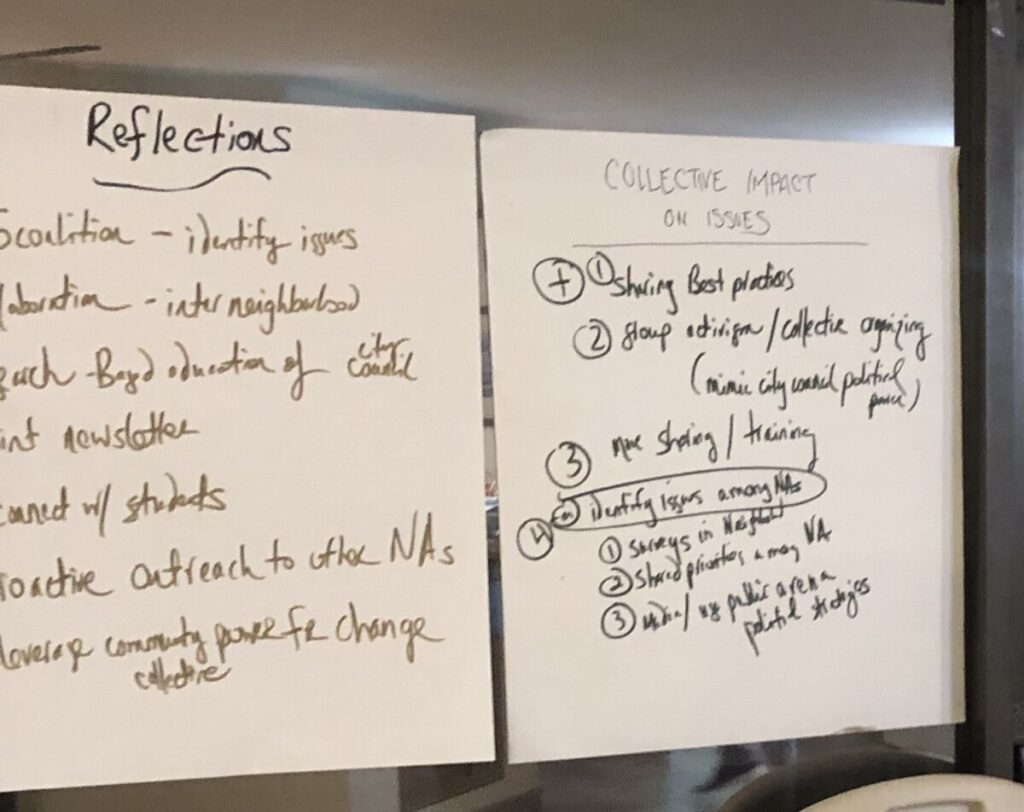 Reflections
coalition - identify issues
laboration - inter neighborhood
earch - Based education of city council
int newsletter
onnect w/ students
roactive outreach to other NAs
leverage community power for change
collective
COLLECTIVE IMPACT
ON ISSUES
+ ① Sharing Best practices
② group activism / collective organizing
(mimic city council political
power)
③ more sharing / training
④ identify issues among NAs
① surveys in Neighborhood
② shared priorities among NA
③ media / public arena
political strategies